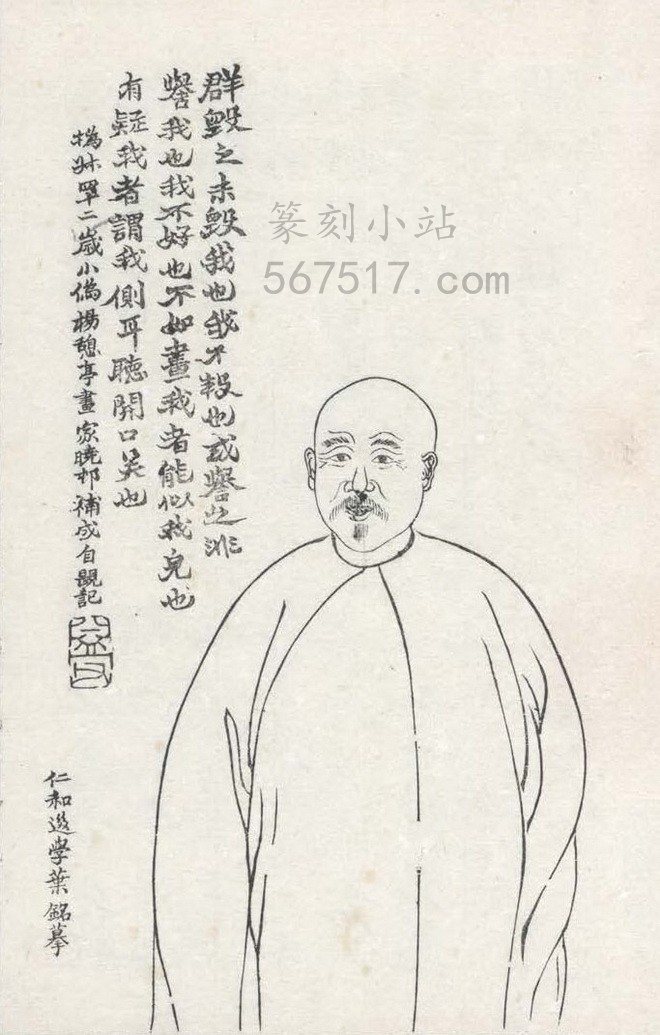 群毀之未毀我也我不報也或譽之非
譽我也我不好也不如畫我者能似我皃也
有疑我者謂我側耳聽開口笑也
撝叔二歲小像楊憩亭畫家曉邨補成自題記
仁和後學葉銘摹
篆刻小站
567517.com